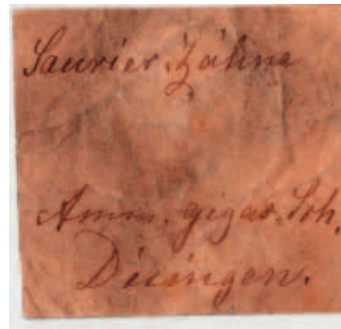 Saurier. Zähne
Amm. gigas. Sch.
Dicingen.